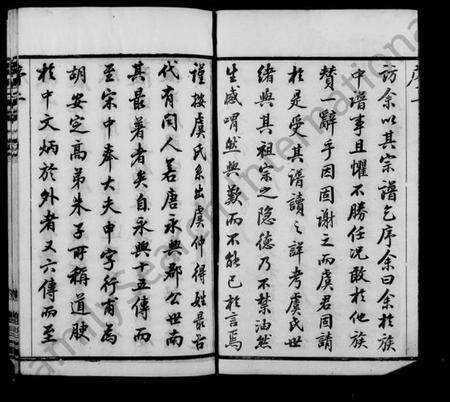 訪余以其宗譜乞序余曰余於族
中譜事且懼不勝任況敢於他族
贊一辭乎因固謝之而虞君固請
於是受其譜讀之詳考虞氏世
緒與其祖宗之隐德乃不禁油然
生感喟然興歎而不能已於言焉
謹按虞氏系出虞仲得姓最古
代有聞人若唐永興郡公世南
其最著者矣自永興十五傳而
至宋中奉大夫申字行甫為
胡安定高弟朱子所稱道腴
於中文炳於外者又六傳而至
序一
序二
Family Search International